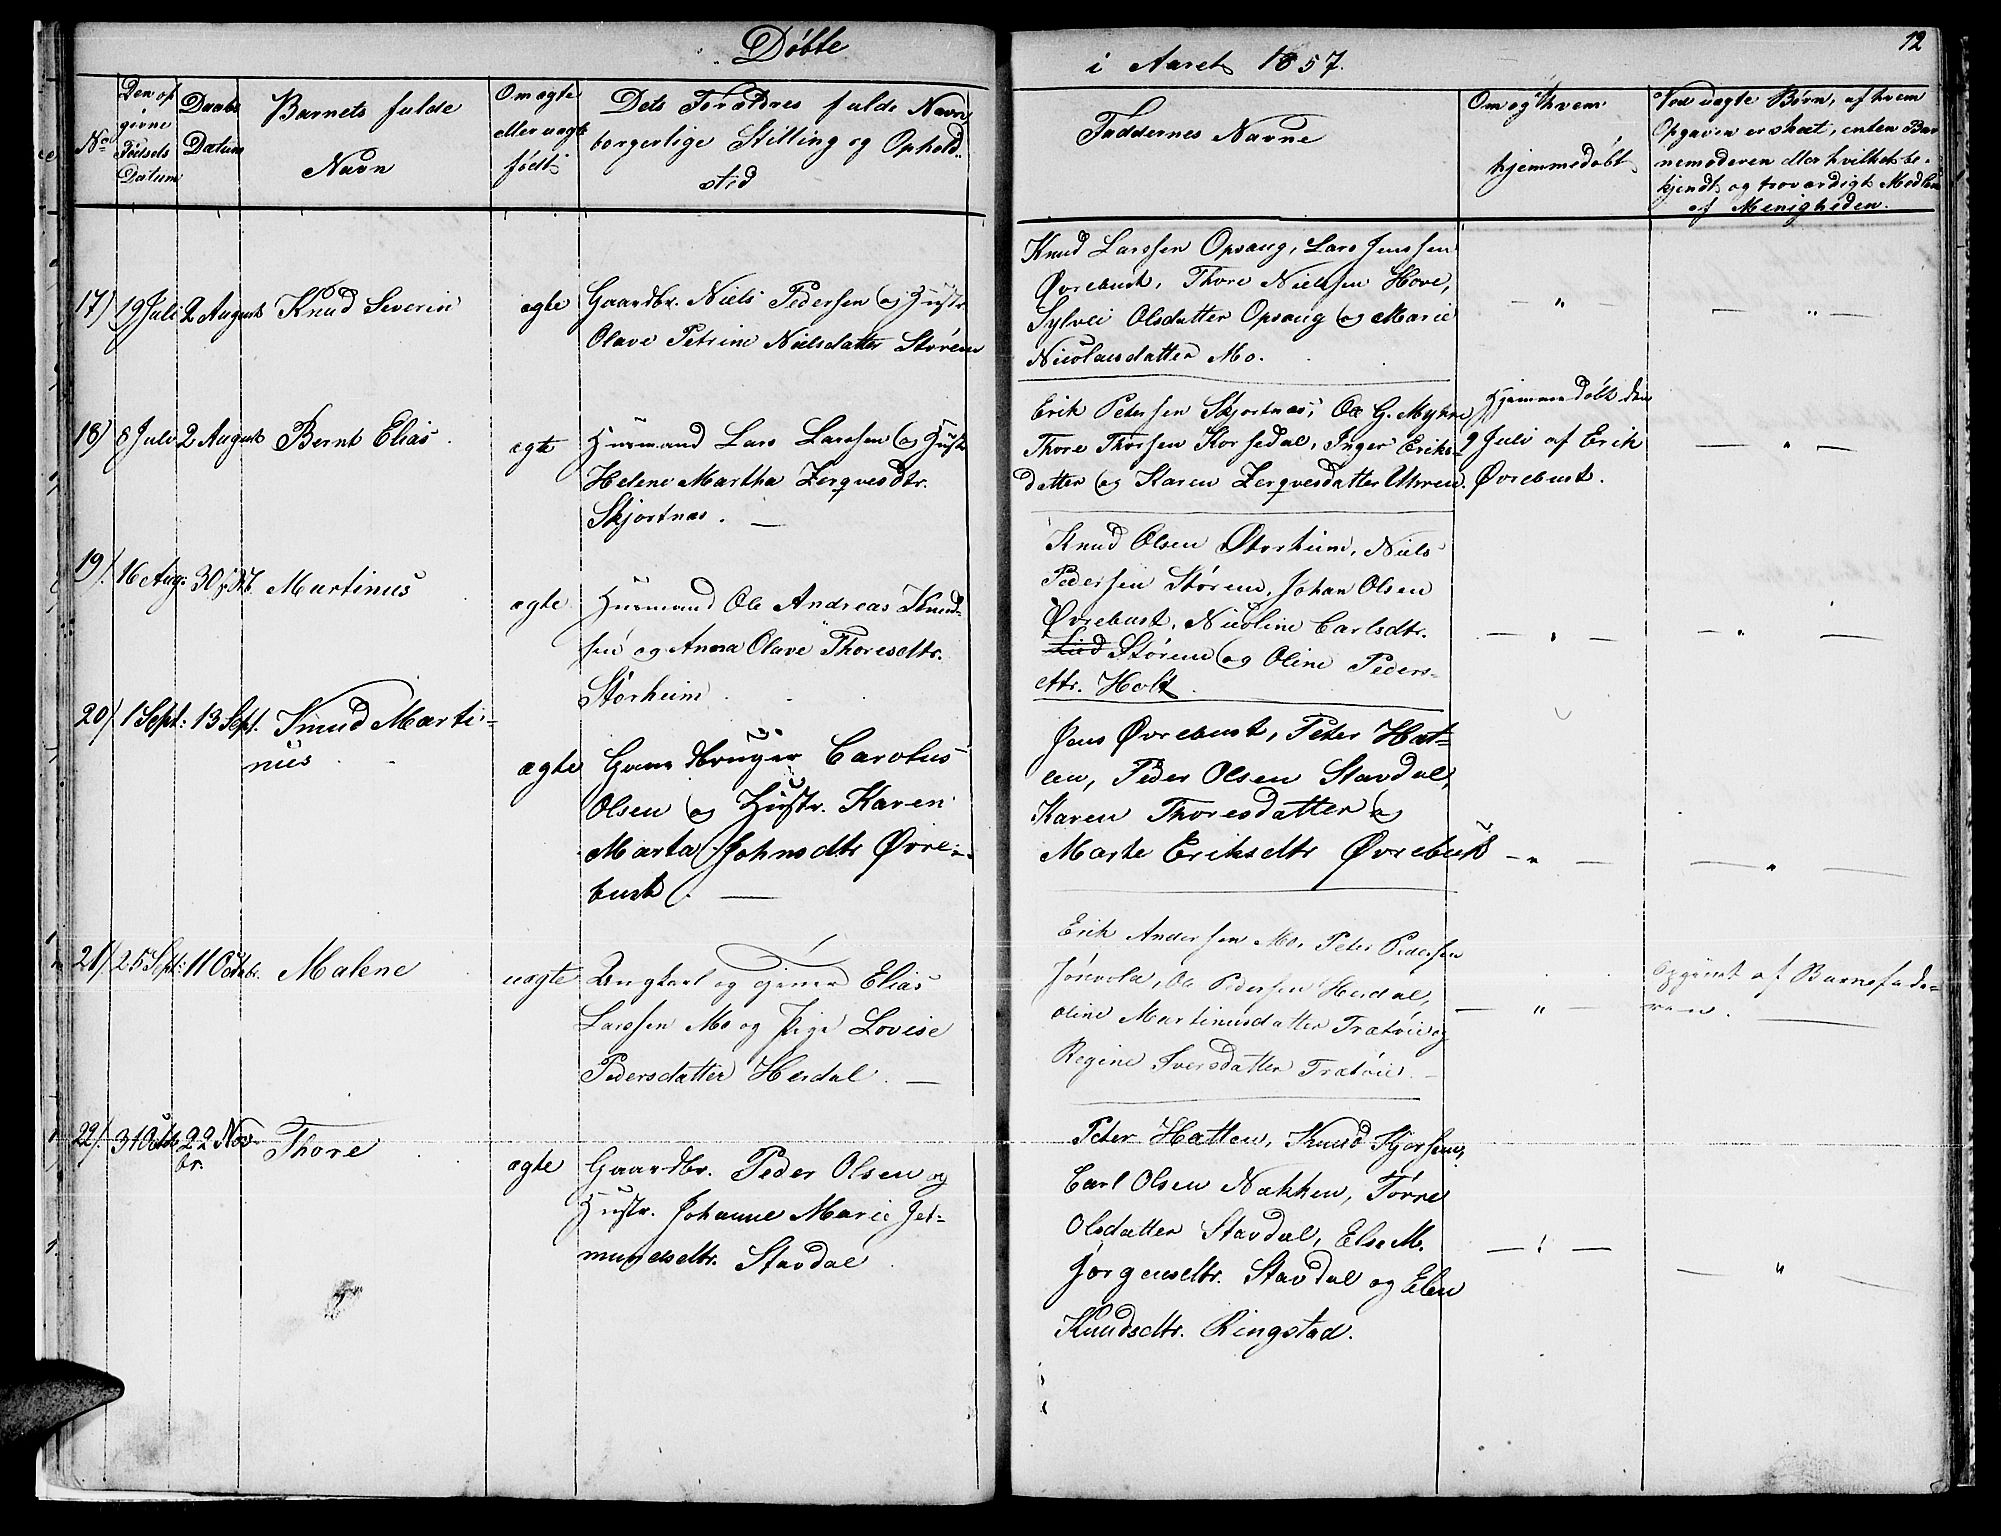 Døbte
i Aaret 1857.
12
No
Den op
givne
Fødsels
Datum
Daabs
Datum
Barnets fulde
Navn
Om ægte
eller uægte
født
Dets Forældres fulde Navn
borgerlige Stilling og Ophold..
sted
Faddernes Navne
Om og af hvem
hjemmedøbt
Ved uægte Børn, af hvem
Opgaven er skeet, enten Bar
nemoderen eller hvilket be-
kjendt og troværdigt Medlem
af Menigheden.
17) 19 Juli 2 August Knud Severin ægte
Gaardbr. Niels Pedersen og Hustr.
Olave Petrine Nielsdatter Støren
Knud Larssen Opsaug, Lars Jenssen
Øvrebust, Thore Nielssen Hove,
Sylvei Olsdatter Opsaug og Marie
Nicolausdatter Mo.
— " —
— " —
18) 8 Juli 2 August Bernt Elias. ægte
Huusmand Lars Larssen og Hustr
Helene Martha Zerqvesdtr.
Skjortnæs. —
Erik Petersen Skjortnæs, Ole G. Myhre,
Thore Thorsen Korsedal, Inger Eriks-
datter og Karen Zerqvesdatter Uhren.
Hjemmedøbt den
9 Juli af Erik
Øvrebust.
— " —
19). 16 Aug: 30 Martinus ægte
Huusmand Ole Andreas Knud-
sen og Anna Olave Thoresdtr.
Storheim
Knud Olsen Storheim, Niels
Pedersen Støren, Johan Olsen
Øvrebust, Nicoline Carlsdtr.
Støren og Oline Peders-
dtr. Holt.
— " —
— " —
20). 1 Sept: 13 Sept. Knud Marti-
nus
ægte
Gaardbruger Carolus
Olsen og Hustr. Karen
Marta Johnsdtr Øvre-
bust. —
Jens Øvrebust, Peter Hat-
len, Peder Olsen Stavdal,
Karen Thoresdatter og
Marte Eriksdtr Øvrebust
— " —
— " —
21). 25 Sept: 11 Octobr. Malene uægte
Ungkarl og Elias
Larssen Mo og Pige Lovise
Pedersdatter Herdal. —
Erik Anderssen Mo, Peter Pedersen
Ole Pedersen Herdal,
Oline Martinusdatter Trætvie og
Regine Iversdatter Trætvie. —
— " —
Opgivet af Barnefade-
ren. —
22). 31 Octbr 22 Nov-
br.
Thore ægte
Gaardbr. Peder Olsen og
Hustr. Johanne Marie Jet-
mundsdtr. Stavdal
Peter Hatlen, Knud
Carl Olsen Nakken, Tørre
Olsdatter Stavdal, Else M.
Jørgensdtr. Stavdal og Elen
Knudsdtr. Ringstad.
— " —
— " —